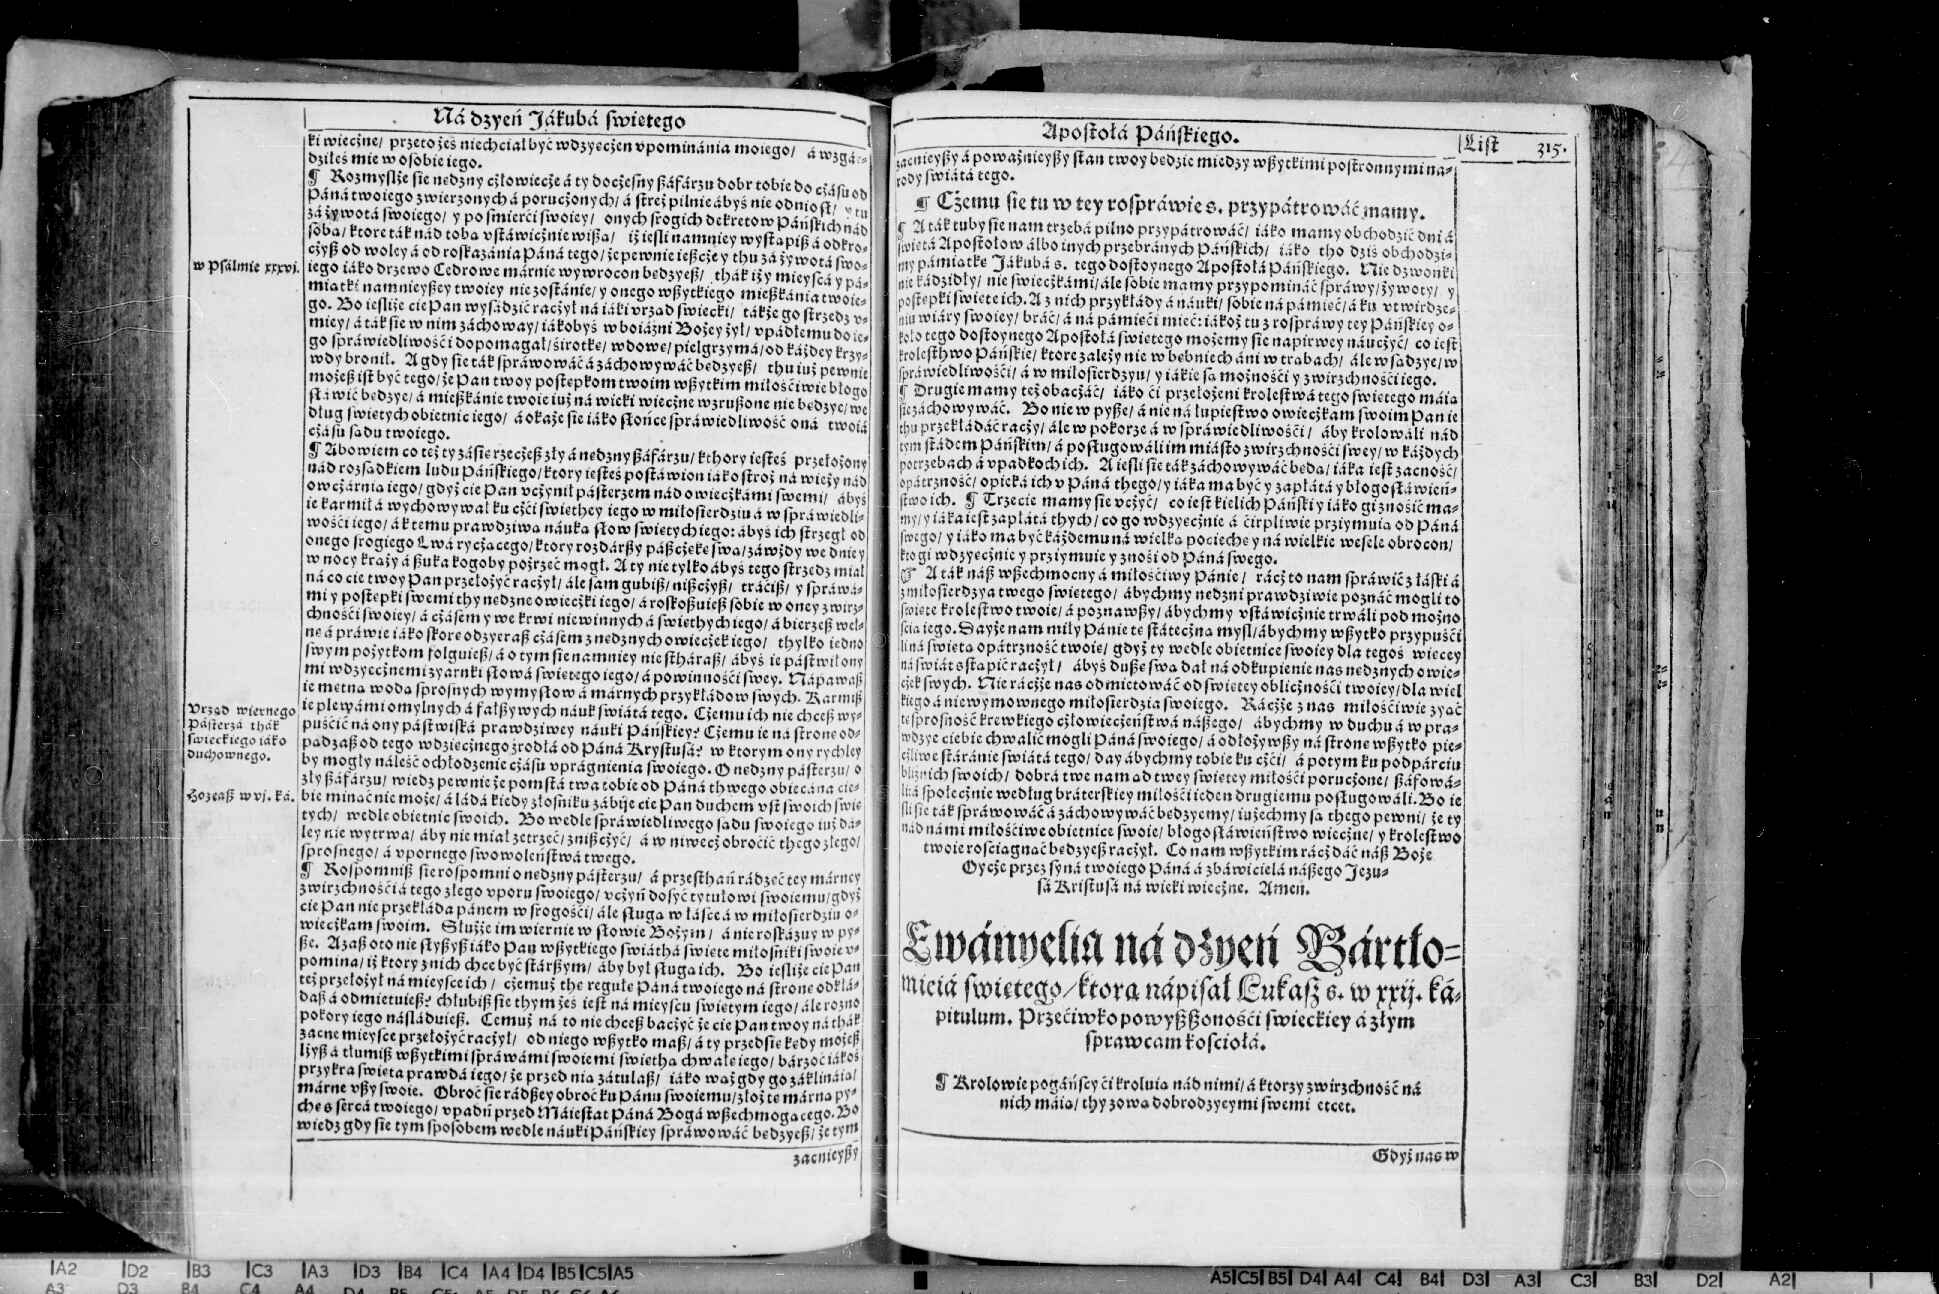 Ná dzyeń Jákubá swietego
ki wiecżne/ przeto żeś niechciał być wdzyecżen vpominánia moiego/ á wzgár-
dziłeś mie w osobie iego.
¶ Rozmyslże sie nedzny cżłowiecże á ty docżesny ßáfárzu dobr tobie do cżásu od
Páná twoiego zwierzonych á porucżonych/ á strzeż pilnie ábyś nie odniosł/ y tu
zá żywotá swoiego/ y po smierći swoiey/ onych srogich dekretow Páńskich nád
soba/ ktore ták nád toba vstáwicżnie wißa/ iż iesli namniey wystapiß á odkro-
cżyß od woley á od roskazánia Páná tego/ że pewnie ießcże y thu zá żywotá swo-
iego iáko drzewo Cedrowe márnie wywrocon bedzyeß/ thák iż y mieyscá y pá-
miatki namnieyßey twoiey nie zostánie/ y onego wßytkiego mießkánia twoie-
go. Bo iesliże cie Pan wysádzić racżył ná iáki vrzad swiecki/ tákże go strzedz v-
miey/ á ták sie w nim záchoway/ iákobyś w boiáźni Bożey żył/ vpádłemu do ie-
go spráwiedliwości dopomagał/ śirotke/ wdowe/ pielgrzymá/ od káżdey krzy-
wdy bronił. A gdy sie ták spráwowáć á záchowywáć bedzyeß/ thu iuż pewnie
możeß ist być tego/ że Pan twoy postepkom twoim wßytkim miłościwie błogo
słáwić bedzye/ á mießkánie twoie iuż ná wieki wiecżne wzrußone nie bedzye/ we
dług swietych obietnic iego/ á okaże sie iáko słońce spráwiedliwość oná twoiá
cżásu sadu twoiego.
¶ Abowiem co też ty zásie rzecżeß zły á nedzny ßáfárzu/ kthory iesteś przełożony
nád rozsadkiem ludu Páńskiego/ ktory iesteś postáwion iáko stroż ná wieży nád
owcżárnia iego/ gdyż cie Pan vcżynił pásterzem nád owiecżkámi swemi/ ábyś
ie karmił á wychowywał ku cżći swiethey iego w miłosierdziu á w spráwiedli-
wości iego/ á k temu prawdziwa náuka słow swietych iego: ábyś ich strzegł od
onego srogiego Lwá rycżacego/ ktory rozdárßy páßcżeke swa/ záwżdy we dnie y
w nocy kraży á ßuka kogoby pożrzeć mogł. A ty nie tylko ábyś tego strzedz miał
ná co cie twoy Pan przełożyć racżył/ ále sam gubiß/ nißcżyß/ tráćiß/ y spráwá-
mi y postepki swemi thy nedzne owiecżki iego/ á roskoßuieß sobie w oney zwirz-
chności swoiey/ á cżásem y we krwi niewinnych á swiethych iego/ á bierzeß wel-
ne á práwie iáko skore odzyeraß cżásem z nedznych owiecżek iego/ thylko iedno
swym pożytkom folguieß/ á o tym sie namniey nie stháraß/ ábyś ie pástwił ony
mi wdzyecżnemi zyarnki słowá swietego iego/ á powinności swey. Nápawaß
ie metna woda sprosnych wymysłow á márnych przykłádow swych. Karmiß
ie plewámi omylnych á fałßywych náuk swiátá tego. Cżemu ich nie chceß wy-
puśćić ná ony pástwiská prawdziwey náuki Páńskiey? Cżemu ie ná strone od-
padzaß od tego wdziecżnego źrodłá od Páná Krystusá? w ktorym ony rychley
by mogły náleść ochłodzenie cżásu vprágnienia swoiego. O nedzny pásterzu/ o
zły ßáfárzu/ wiedz pewnie że pomstá twa tobie od Páná thwego obiecána cie-
bie minać nie może/ á ládá kiedy złośniku zábije cie Pan duchem vst swoich swie
tych/ wedle obietnic swoich. Bo wedle spráwiedliwego sadu swoiego iuż dá-
ley nie wytrwa/ áby nie miał zetrzeć/ znißcżyć/ á w niwecż obroćić thego złego/
sprosnego/ á vpornego swowoleństwá twego.
¶ Rospomniß sie rospomni o nedzny pásterzu/ á przesthań rádzeć tey márney
zwirzchności á tego złego vporu swoiego/ vcżyń dosyć tytułowi swoiemu/ gdyż
cie Pan nie przekłáda pánem w srogości/ ále sługa w łásce á w miłosierdziu o-
wiecżkam swoim. Służże im wiernie w słowie Bożym/ á nie roskázuy w py-
ße. Azaß oto nie słyßyß iáko Pan wßytkiego swiáthá swiete miłośniki swoie v-
pomina/ iż ktory z nich chce być stárßym/ áby był sługa ich. Bo iesliże cie Pan
też przełożył ná mieysce ich/ cżemuż the regułe Páná twoiego ná strone odkłá-
daß á odmietuieß? chłubiß sie thym żeś iest ná mieyscu swietym iego/ ále rozno
pokory iego násláduieß. Cemuż ná to nie chceß bacżyć że cie Pan twoy ná thák
zacne mieysce przełożyć racżył/ od niego wßytko maß/ á ty przedsie kedy możeß
lżyß á tłumiß wßytkimi spráwámi swoiemi swietha chwałe iego/ bárzoć iákoś
przykra swieta prawdá iego/ że przed nia zátulaß/ iáko waż gdy go záklináią/
márne vßy swoie. Obroć sie rádßey obroć ku Pánu swoiemu/ złoż te márna py-
che s sercá twoiego/ vpadń przed Máiestat Páná Bogá wßechmogacego. Bo
wiedz gdy sie tym sposobem wedle náuki Páńskiey spráwowáć bedzyeß/ że tym
zacnieyßy
w Psálmie xxxvj.
Vrzad wiernego
Pásterzá thák
swieckiego iáko
duchownego.
Hozeaß w vj. ká.
Apostołá Páńskiego.
List 315.
zacnieyßy á poważnieyßy stan twoy bedzie miedzy wßytkimi postronnymi na-
rody swiátá tego.
¶ Cżemu sie tu w tey rospráwie s. przypátrowáć mamy.
¶ A ták tuby sie nam trzebá pilno przypátrowáć/ iáko mamy obchodzić dni á
swietá Apostołow álbo inych przebránych Páńskich/ iáko tho dziś obchodzi-
my pámiatke Jákubá s. tego dostoynego Apostołá Páńskiego. Nie dzwonki
nie kádzidły/ nie swiecżkámi/ ále sobie mamy przypomináć spráwy/ żywoty/ y
postepki swiete ich. A z nich przykłády á náuki/ sobie ná pámieć/ á ku vtwirdze-
niu wiáry swoiey/ bráć/ á ná pámieći mieć: iákoż tu z rospráwy tey Páńskiey o-
koło tego dostoynego Apostołá swietego możemy sie napirwey náucżyć/ co iest
krolesthwo Páńskie/ ktore zależy nie w bebniech áni w trabach/ ále w sadzye/ w
spráwiedliwości/ á w miłosierdzyu/ y iákie sa możności y zwirzchności iego.
¶ Drugie mamy też obacżáć/ iáko ći przełożeni krolestwá tego swietego máia
sie záchowywáć. Bo nie w pyße/ á nie ná łupiestwo owiecżkam swoim Pan ie
thu przekłádáć racży/ ále w pokorze á w spráwiedliwości/ áby krolowáli nád
tym stádem Páńskim/ á posługowáli im miásto zwirzchności swey/ w káżdych
potrzebach á vpadkoch ich. A iesli sie ták záchowywáć beda/ iáka iest zacność/
opátrzność/ opieká ich v Páná thego/ y iáka ma być y zapłátá y błogosłáwień-
stwo ich. ¶ Trzecie mamy sie vcżyć/ co iest kielich Páński y iáko gi znośić ma-
my/ y iáka iest zapłátá thych/ co go wdzyecżnie á ćirpliwie prziymuia od Páná
swego/ y iáko ma być káżdemu ná wielka pocieche y ná wielkie wesele obrocon/
kto gi wdzyecżnie y prziymuie y znośi od Páná swego.
☞ A ták náß wßechmocny á miłośćiwy Pánie/ racż to nam spráwić z łáski á
z miłosierdzya twego swietego/ ábychmy nedzni prawdziwie poznáć mogli to
swiete krolestwo twoie/ á poznawßy/ ábychmy vstáwicżnie trwáli pod możno
scia iego. Dayże nam miły Pánie te státecżna mysl/ ábychmy wßytko przypuśći
li ná swieta opátrzność twoie/ gdyż ty wedle obietnice swoiey dla tegoś wiecey
ná swiát stapić racżył/ ábyś duße swa dał ná odkupienie nas nedznych owie-
cżek swych. Nie racżże nas odmietowáć od swietey oblicżności twoiey/ dla wiel
kiego á niewymownego miłosierdzia swoiego. Racżże z nas miłośćiwie zyać
te sprosność krewkiego cżłowiecżeństwá nášego/ ábychmy w duchu á w pra-
wdzye ciebie chwalić mogli Páná swoiego/ á odłożywßy ná strone wßytko pie-
cżliwe stáránie swiátá tego/ day ábychmy tobie ku cżći/ á potym ku podpárciu
bliźnich swoich/ dobrá twe nam ad twey swietey miłości porucżone/ ßáfowá-
li á społecżnie według bráterskiey miłości ieden drugiemu posługowáli. Bo ie
sli sie ták spráwowáć á záchowywáć bedzyemy/ iużechmy sa thego pewni/ że ty
nád námi miłośćiwe obietnice swoie/ błogosłáwieństwo wiecżne/ y krolestwo
twoie rosciagnać bedzyeß racżył. Co nam wßytkim racż dáć náß Boże
Oycże przez syná twoiego Páná á zbáwicielá nášego Jezu-
sá Kristusá ná wieki wiecżne. Amen.
Ewányelia ná dzyeń Bártło-
mieiá swietego/ ktora nápisał Lukaß s. w xxij. ká-
pitulum. Przećiwko powyßßoności swieckiey á złym
sprawcam kościołá.
¶ Krolowie pogáńscy ći kroluia nád nimi/ á ktorzy zwirzchność ná
nich máia/ thy zowa dobrodzyeymi swemi etcet.
Gdyż nas w
A2 D2 B3 C3 A3 D3 B4 C4 A4 D4 B5 C5 A5
A5 C5 B5 D4 A4 C4 B4 D3 A3 C3 B3 D2 A2